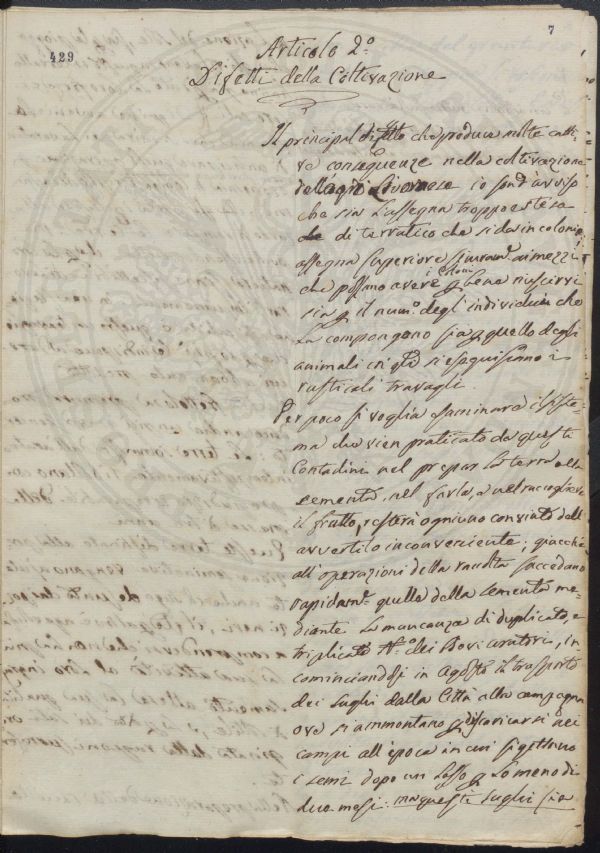 7
429
Articolo 2º
Difetti della Coltivazione
Il principal difetto che produce molte catti-
ve conseguenze nella coltivazione
dell'agro Livornese io son d'avviso
che sia l'assegna troppo estesa
di terratico che si da in colonia
assegna superiore ai mezzi
che possono avere i Coloni p bene riuscirvi
sia p il num.º degl'individui che
la compongono sia p quello degli
animali cn' qli si eseguiscono i
rusticali travagli.
Per poco si voglia esaminare il siste-
ma che vien praticato da questi
Contadini nel prepar la terra alla
sementa, nel farla, e nel raccogliere
il frutto, resterà ogniuno convinto dell'
avvertito inconveniente; giacchè
all'operazioni della raccolta succedano
rapidam.e quelle della sementa me-
diante la mancanza di duplicato, e
triplicato N.º dei Bovi aratori, in-
cominciandosi in Agosto il trasporto
dei sughi dalla Città alla campagna
ove si ammontano p discaricarsi nei
campi all'epoca in cui si gettano
i semi dopo un lasso p lo meno di
due mesi: ma questi sughi sia